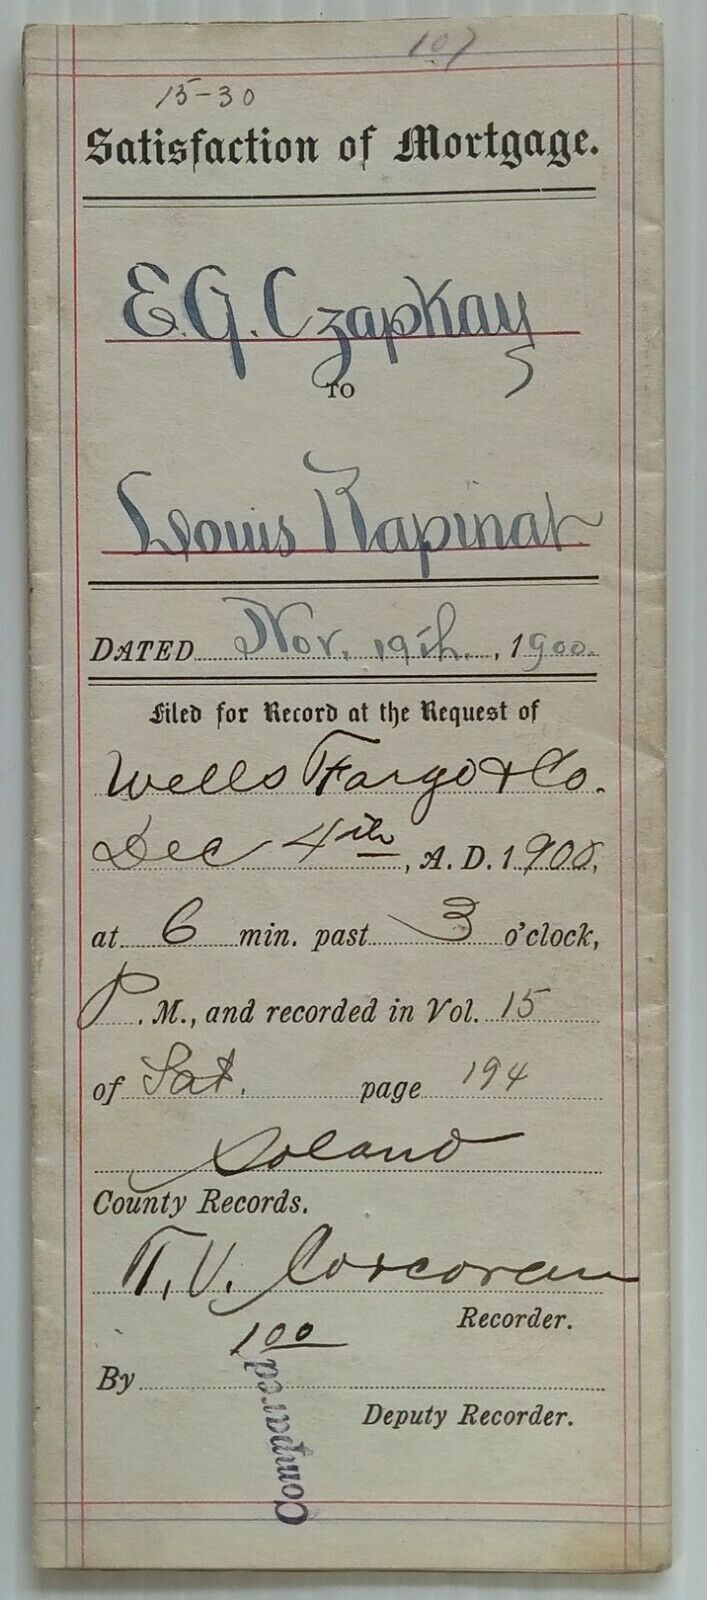 107
15-30
Satisfaction of Mortgage.
E. G. Czapkay
TO
Louis Rapinat
DATED Nov. 19th, 1900.
Filed for Record at the Request of
Wells Fargo & Co.
Dec 4th, A. D. 1900,
at 6 min. past 3 o'clock,
P. M., and recorded in Vol. 15
of Sat. page 194
Solano
County Records.
T. V. Corcoran
Recorder.
1 00
By
Deputy Recorder.
Compared